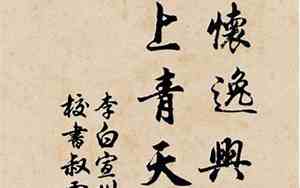 懷逸興
上青天
李白宣
校書叔